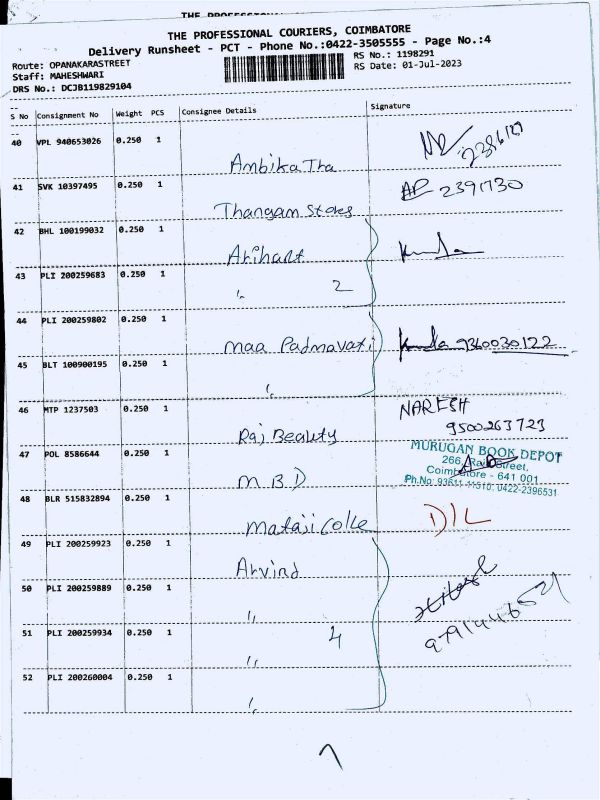 THE PROFESSIONAL COURIERS, COIMBATORE
Delivery Runsheet - PCT - Phone No.:0422-3505555 - Page No.:4
Route: OPANAKARASTREET
Staff: MAHESHWARI
DRS No.: DCJB119829104
RS No.: 1198291
RS Date: 01-Jul-2023
S No Consignment No Weight PCS Consignee Details Signature
40 VPL 940653026 0.250 1 Ambika Tha
41 SVK 10397495 0.250 1 Thangam Stores 2391730
42 BHL 100199032 0.250 1 Arihant
43 PLI 200259683 0.250 1 " 2
44 PLI 200259802 0.250 1 Maa Padmavati 9360030122
45 BLT 100900195 0.250 1 "
46 MTP 1237503 0.250 1 Raj Beauty NARESH
9500263723
47 POL 8586644 0.250 1 M B D MURUGAN BOOK DEPOT
266, Street,
Coimbatore - 641 001.
Ph.No: 93611 11510, 0422-2396531
48 BLR 515832894 0.250 1 Mataji Colle D/L
49 PLI 200259923 0.250 1 Arvind
50 PLI 200259889 0.250 1 "
51 PLI 200259934 0.250 1 " 4
52 PLI 200260004 0.250 1 "